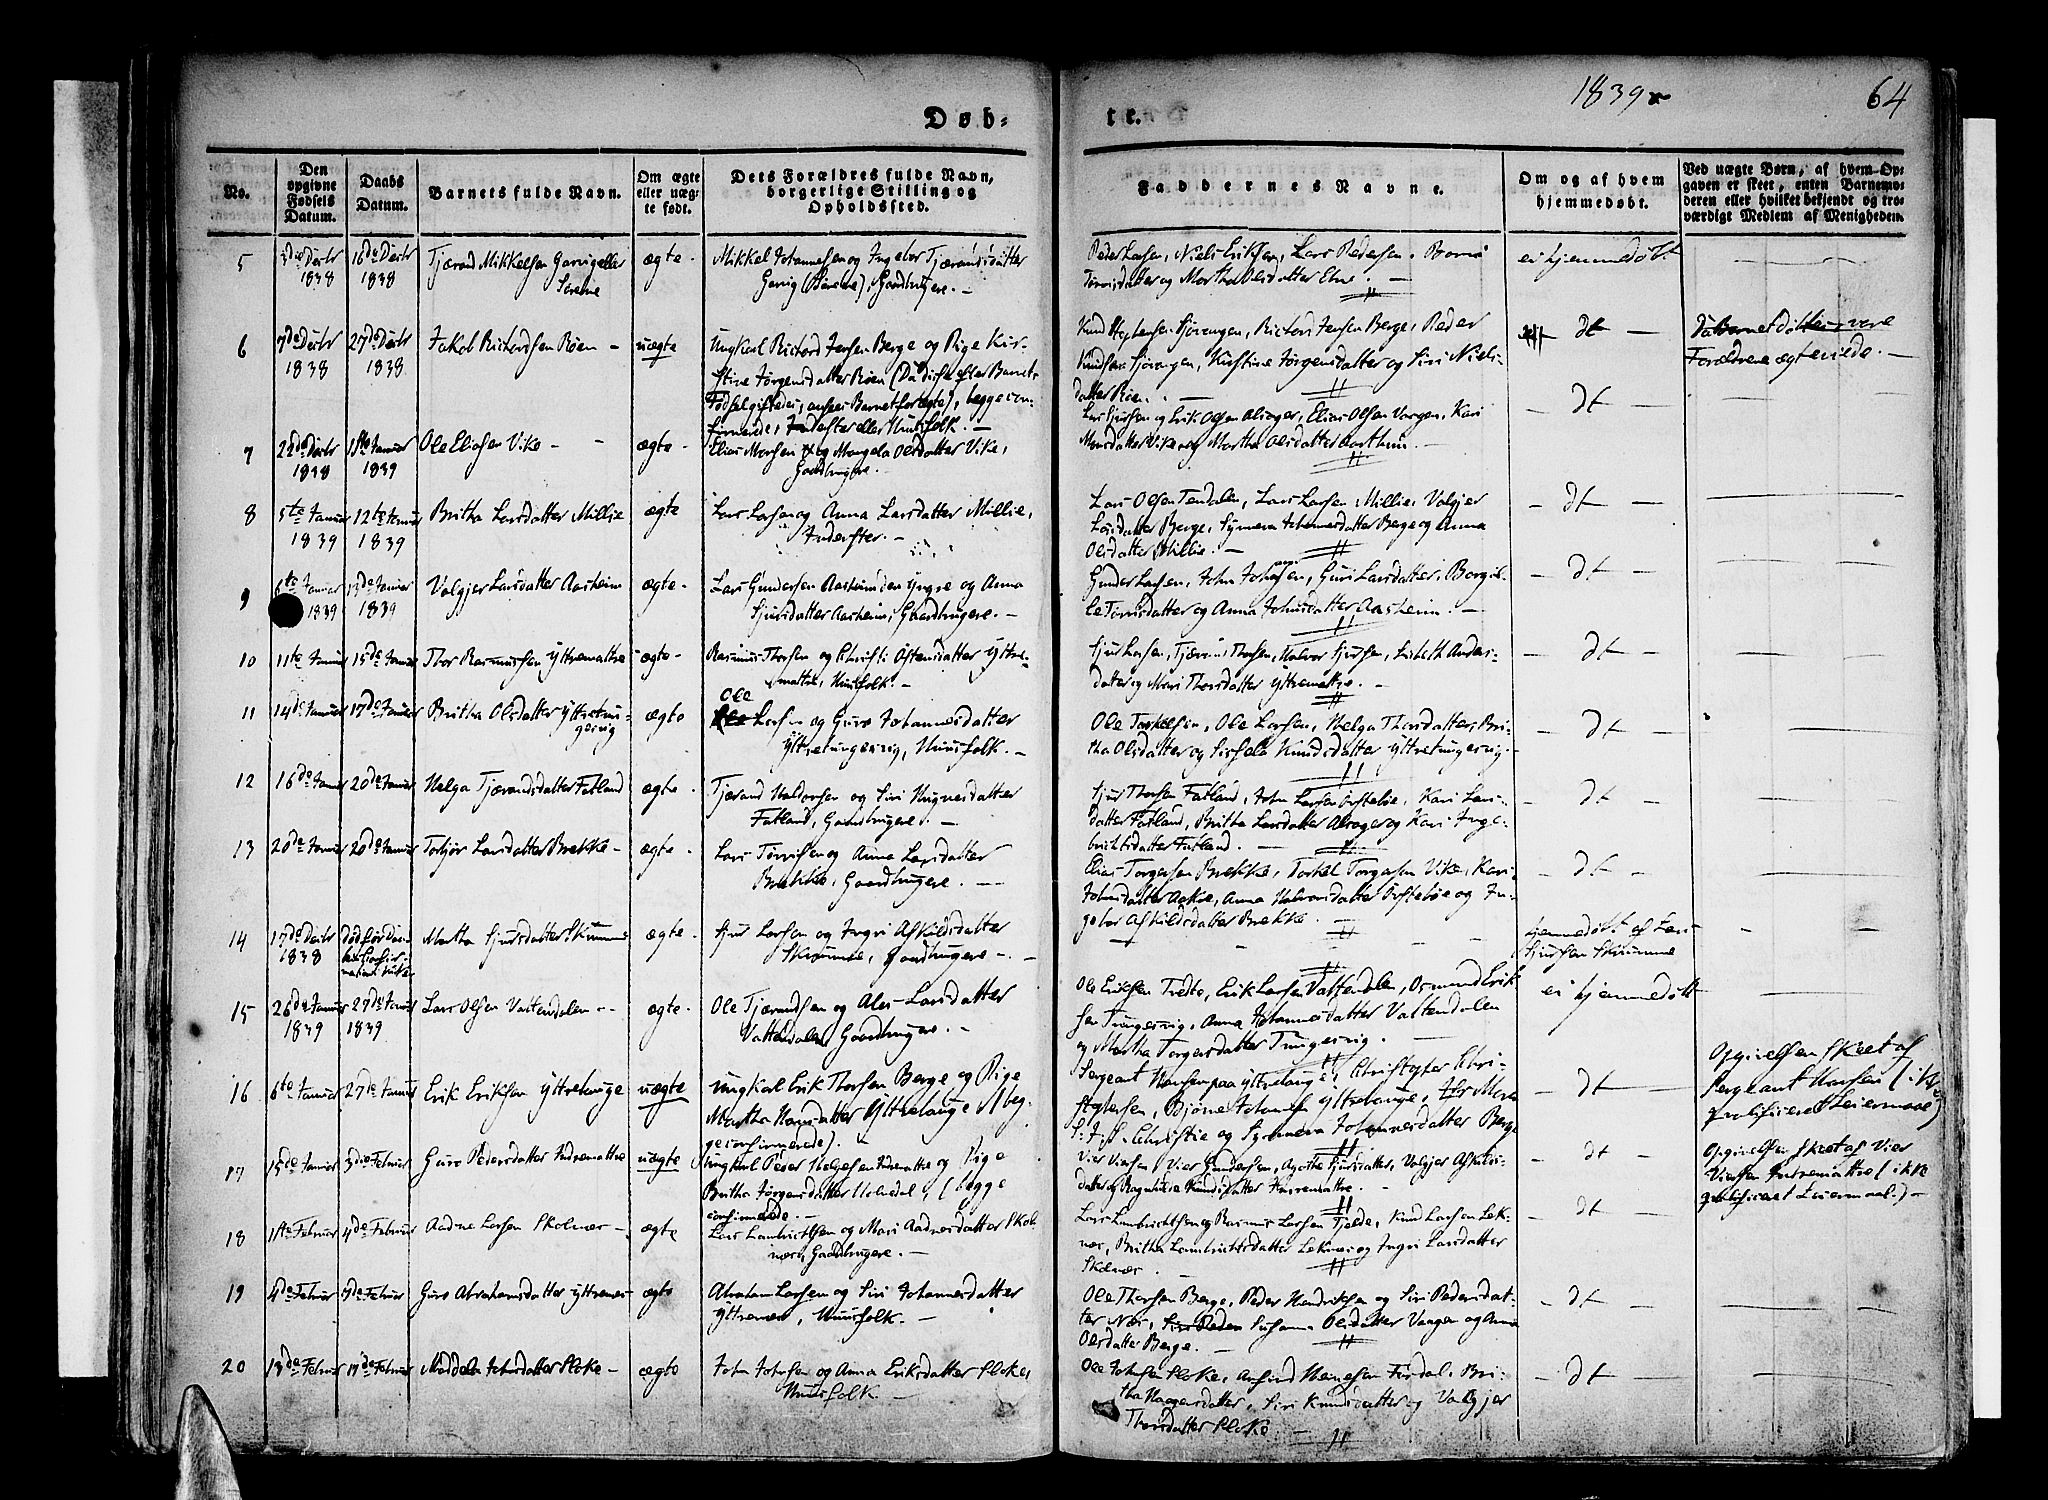 1839
64
Døb-
te.
No.
Den opgivne Fødsels Datum.
Daabs Datum.
Barnets fulde Navn.
Om ægte eller uæg- te født.
Dets Forældres fulde Navn, borgerlige Stilling og Opholdssted.
Faddernes Navne.
Om og af hvem hjemmedøbt.
Ved uægte Børn, af hvem Op- gaven er skeet, enten Barnemo- deren eller hvilket bekjendt og tro- værdigt Medlem af Menigheden.
5
Decbr 1838
16de Decbr 1838
Tjærand Mikkelsen Garvig eller
ægte
Mikkel Johannesen og Ingebor Tjærandsdatter
Garvig, Gaardbrugere.
Peder Larsen, Niels Eriksen, Lars Pedersen,
og Martha Olsdatter Etne
ei hjemmedøbt
6
7de Decbr 1838
27de Decbr 1838
Jakob Richardsen Røen
uægte
Ungkarl Richard Jensen Berge og Pige Kir-
stine Jørgensdatter Røen (Da disse efter Barnets
begge con-
firmerede, Inderster eller Huusfolk.
Richard Jensen Berge, Peder
Kirstine Jørgensdatter og Siri Niels-
datter Røen.
dt
Forældrene ægteviede.
7
22de Decbr 1838
Januar 1839
Ole Eliasen Vike
ægte
Elias Monsen og Mangela Olsdatter Vike,
Gaardbrugere.
Lars Sjursen og Erik Olsen Alsager, Elias Olsen Vaagen, Kari
Monsdatter Vike og Martha Olsdatter
dt
8
5te Januar 1839
12te Januar 1839
Britha Larsdatter Millie
ægte
Lars Larsen og Anna Larsdatter Millie,
Inderster.
Lars Olsen Tendalen, Lars Larsen Millie, Valgjer
Larsdatter Berge, Synneva Johannesdatter Berge og Anna
Olsdatter Millie.
dt
9
6te Januar 1839
13de Januar 1839
Valgjer Larsdatter Aasheim
ægte
Lars Gundersen Aasheim den yngre og Anna
Sjursdatter Aasheim, Gaardbrugere.
Gunder Larsen, John Johnsen, Guri Larsdatter, Borgil-
le Tørrisdatter og Anna Johnsdatter Aasheim.
dt
10
11te Januar
15de Januar
Thor Rasmussen Yttrematthre
ægte
Rasmus Thorsen og Christi Østensdatter Yttre-
mattre, Huusfolk.
Sjur Larsen, Thorsen, Halvor Sjursen, Lisbeth Anders-
datter og Mari Thorsdatter Yttremattre.
dt
11
14de Januar
17de Januar
Britha Olsdatter Yttretun-
gesvig
ægte
Ole
Larsen og Guro Johannesdatter
Yttretungesvig, Huusfolk.
Ole Torkelsen, Ole Larsen, Helga Thorsdatter, Bri-
tha Olsdatter og Sissela Knudsdatter Yttretungesvig.
dt
12
16de Januar
20de Januar
Helga Tjærandsdatter Fatland
ægte
Tjærand Haldorsen og Siri Magnesdatter
Fatland, Gaardbrugere.
Sjur Thorsen Fatland, John Larsen Ørsteløe, Kari Lars-
datter Fatland, Britha Larsdatter Alsager og Kari Inge-
brichtsdatter Fatland.
dt
13
20de Januar
Torbjør Larsdatter Brekke
ægte
Lars Tørrisen og Anna Larsdatter
Brekke, Gaardbrugere.
Elias Torgersen Brekke, Torkel Torgersen Vike, Kari
Johnsdatter, Anna Halvorsdatter Ørsteløe og In-
gebor Askildsdatter Brekke.
dt
14
17de Decbr 1838
Martha Sjursdatter Skrumme
ægte
Sjur Larsen og Ingri Askildsdatter
Skrumme, Gaardbrugere.
hjemmedøbt af Lars
Sjursen Skrumme
15
26de Januar 1839
27de Januar 1839
Lars Olsen Vattendalen
ægte
Ole Tjærandsen og Ales Larsdatter
Vattendalen, Gaardbrugere.
Ole Eriksen Tredto, Erik Larsen Vattendalen, Osmund Erik
sen Tungesvig, Anna Johannesdatter Vattendalen
og Martha Torgersdatter Tungesvig.
ei hjemmedøbt
16
6te Januar
27de Januar
Erik Eriksen Yttretunge
uægte
Ungkarl Erik Thorsen Berge og Pige
Martha Hansdatter Yttretunge (beg-
ge confirmerede).
Sergeant Hansen paa Yttretunge, Christopher Chri-
stophersen, Bjørne Johansen Yttretunge,
Christie og Synneva Johannesdatter Berge
dt
Opgivelsen skeet af
Sergeant Hansen (ikke
qualificeret Leiermaal)
17
15de Januar
3die Februar
Guro Pedersdatter Indremattre
uægte
Ungkarl Peder Helgesen Indremattre og Pige
Britha Jørgensdatter (begge
confirmerede.
Vier Viersen, Vier Gundersen, Agathe Sjursdatter, Valgjer Askilds-
datter og Ragnhilde Knudsdatter
dt
Opgivelsen skeet af Vier
Viersen Indremattre (ikke
qualificeret Leiermaal.)
18
1ste Februar
4de Februar
Aadne Larsen Skolnæs
ægte
Lars Lambrichtsen og Mari Aadnesdatter Skol-
næs, Gaardbrugere.
Lars Lambrichtsen og Rasmus Larsen Tjelde, Knud Larsen Lek-
næs, Britha Lambrichtsdatter Leknæs og Ingri Larsdatter
Skolnæs
dt
19
4de Februar
7de Februar
Guro Abrahamsdatter Yttrenæs
ægte
Abraham Larsen og Siri Johannesdatter
Yttrenæs, Huusfolk.
Ole Thorsen Berge, Peder Hendriksen og Siri Pedersdat-
ter Næs, Susanna Olsdatter Vaagen og Anna
Olsdatter Berge.
dt
20
13de Februar
17de Februar
Johnsdatter Floke
ægte
John Johnsen og Anna Eriksdatter Floke,
Huusfolk
Ole Johnsen Floke, Bri-
tha Haagensdatter, Siri Knudsdatter og Valgjer
Thorsdatter Floke
dt